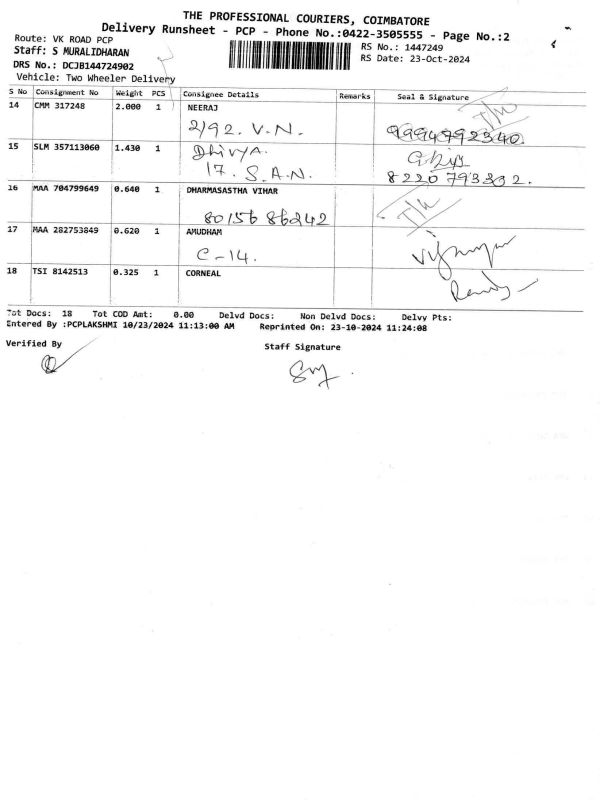 THE PROFESSIONAL COURIERS, COIMBATORE
Delivery Runsheet - PCP - Phone No.:0422-3505555 - Page No.:2
Route: VK ROAD PCP
RS No.: 1447249
Staff: S MURALIDHARAN
RS Date: 23-Oct-2024
DRS No.: DCJB144724902
Vehicle: Two Wheeler Delivery
S No Consignment No Weight PCS Consignee Details Remarks Seal & Signature
14 CMM 317248 2.000 1 NEERAJ
2/92. V.N. 9994792340.
15 SLM 357113060 1.430 1 Dhivya.
17. S.A.N. 8220793232.
16 MAA 704799649 0.640 1 DHARMASASTHA VIHAR
80156 86242
17 MAA 282753849 0.620 1 AMUDHAM
C-14.
18 TSI 8142513 0.325 1 CORNEAL
Tot Docs: 18 Tot COD Amt: 0.00 Delvd Docs: Non Delvd Docs: Delvy Pts:
Entered By :PCPLAKSHMI 10/23/2024 11:13:00 AM Reprinted On: 23-10-2024 11:24:08
Verified By
Staff Signature